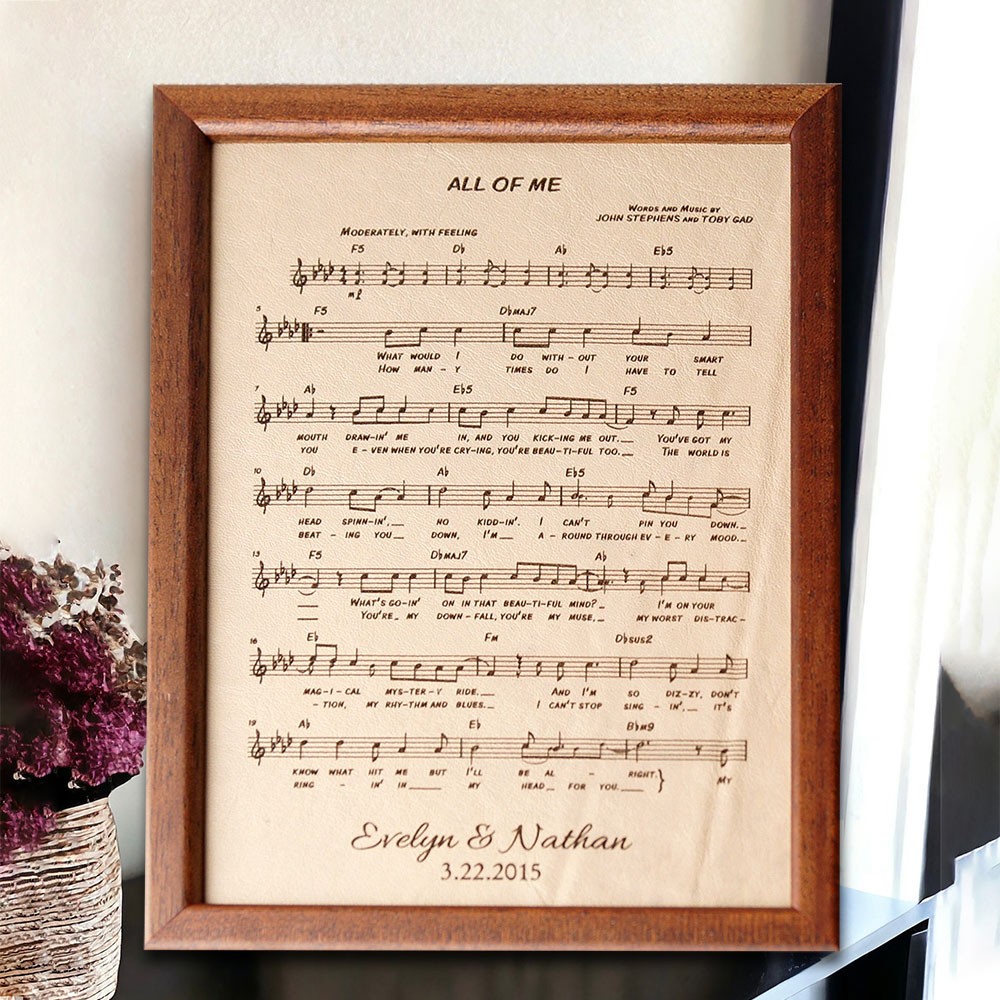 ALL OF ME
WORDS AND MUSIC BY
JOHN STEPHENS AND TOBY GAD
MODERATELY, WITH FEELING
F5 D♭ A♭ E♭5
mf
5 F5 D♭MAJ7
WHAT WOULD I DO WITH-OUT YOUR SMART
HOW MAN-Y TIMES DO I HAVE TO TELL
7 A♭ E♭5 F5
MOUTH DRAW-IN' ME IN, AND YOU KICK-ING ME OUT.__ YOU'VE GOT MY
YOU E-VEN WHEN YOU'RE CRY-ING, YOU'RE BEAU-TI-FUL TOO.__ THE WORLD IS
10 D♭ A♭ E♭5
HEAD SPINN-IN',__ NO KIDD-IN'. I CAN'T PIN YOU DOWN.__
BEAT-ING YOU__ DOWN, I'M__ A-ROUND THROUGH EV-E-RY MOOD.__
13 F5 D♭MAJ7 A♭
WHAT'S GO-IN' ON IN THAT BEAU-TI-FUL MIND?__ I'M ON YOUR
YOU'RE__ MY DOWN-FALL, YOU'RE MY MUSE,__ MY WORST DIS-TRAC-
16 E♭ FM D♭SUS2
MAG-I-CAL MYS-TER-Y RIDE.__ AND I'M SO DIZ-ZY, DON'T
-TION, MY RHY-THM AND BLUES.__ I CAN'T STOP SING-IN',__ IT'S
19 A♭ E♭ B♭M9
KNOW WHAT HIT ME BUT I'LL BE AL-RIGHT.} MY
RING-IN' IN____ MY HEAD__ FOR YOU.___
Evelyn & Nathan
3.22.2015